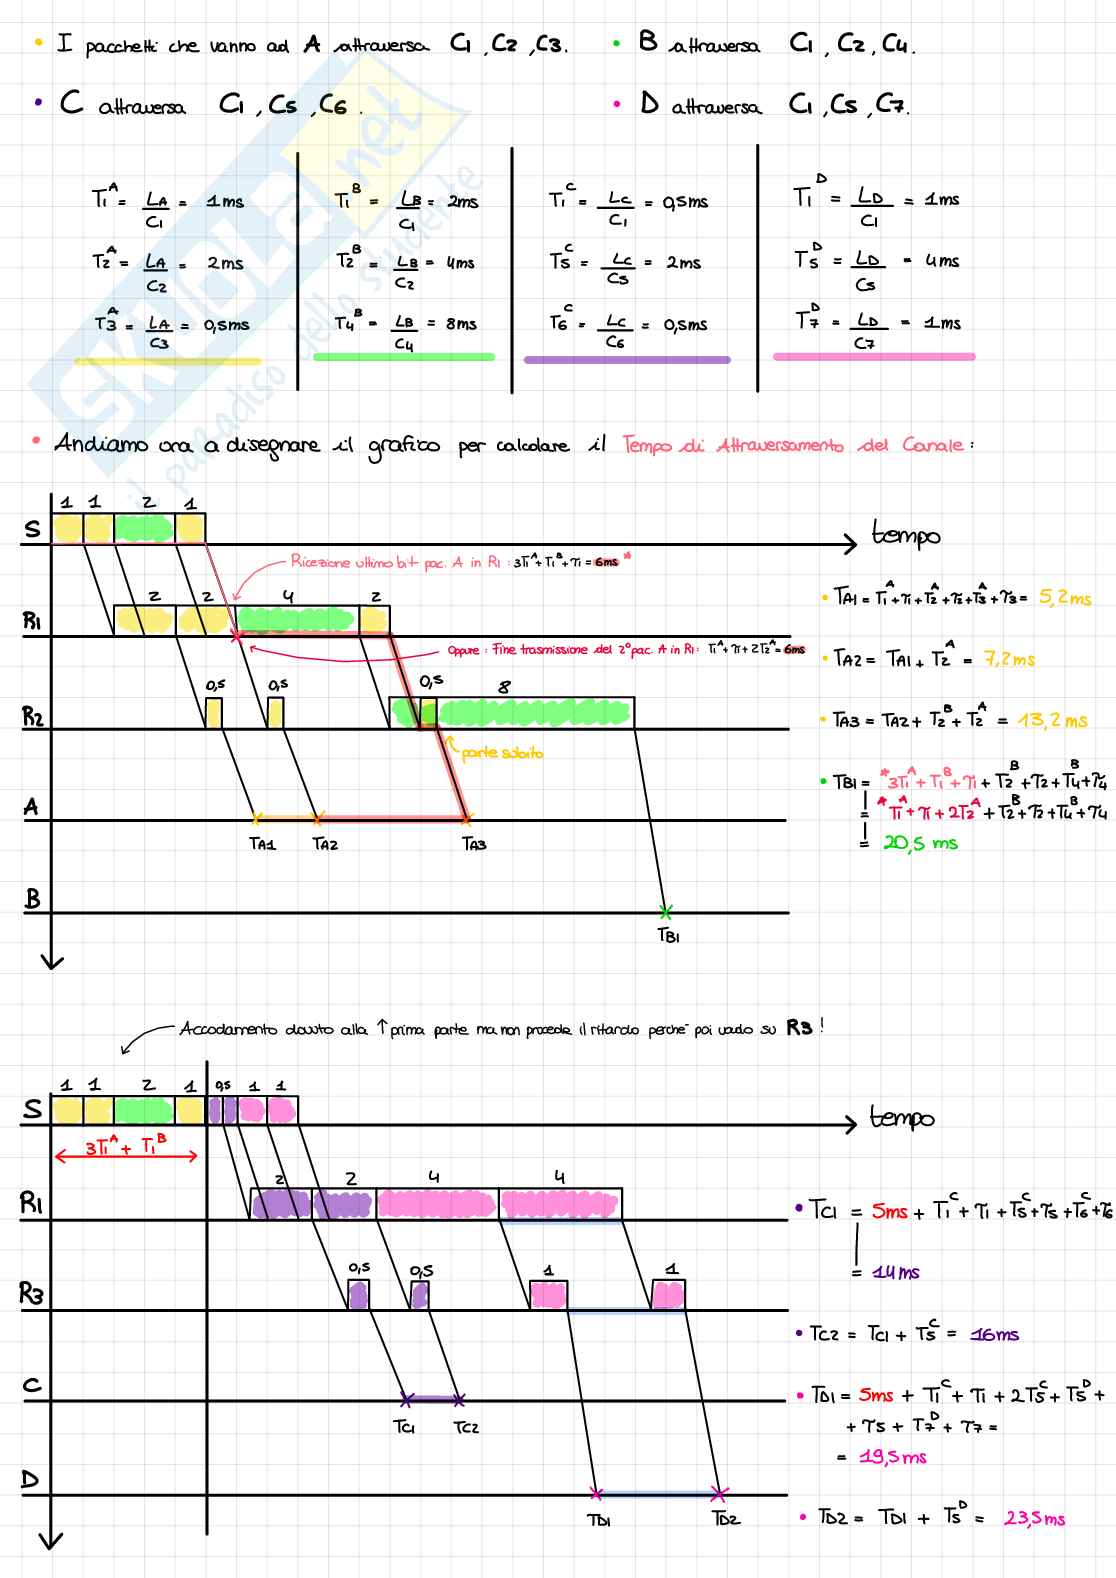 • I pacchetti che vanno ad A attraversa C1, C2, C3.
• B attraversa C1, C2, C4.
• C attraversa C1, C5, C6.
• D attraversa C1, C5, C7.
T1^A = LA/C1 = 1ms
T2^A = LA/C2 = 2ms
T3^A = LA/C3 = 0,5ms
T1^B = LB/C1 = 2ms
T2^B = LB/C2 = 4ms
T4^B = LB/C4 = 8ms
T1^C = LC/C1 = 0,5ms
T5^C = LC/C5 = 2ms
T6^C = LC/C6 = 0,5ms
T1^D = LD/C1 = 1ms
T5^D = LD/C5 = 4ms
T7^D = LD/C7 = 1ms
SKUOLA.net
il paradiso dello studente
• Andiamo ora a disegnare il grafico per calcolare il Tempo di Attraversamento del Canale:
1 1 2 1
S
tempo
Ricezione ultimo bit pac. A in R1: 3T1^A + T1^B + τ1 = 6ms *
2 2 4 2
R1
Oppure: Fine trasmissione del 2° pac. A in R1: T1^A + τ1 + 2T2^A = 6ms
0,5 0,5 0,5 8
R2
parte subito
A
TA1 TA2 TA3
B
TB1
• TA1 = T1^A + τ1 + T2^A + τ2 + T3^A + τ3 = 5,2ms
• TA2 = TA1 + T2^A = 7,2ms
• TA3 = TA2 + T2^B + T2^A = 13,2ms
• TB1 = *3T1^A + T1^B + τ1 + T2^B + τ2 + T4^B + τ4
= *T1^A + τ1 + 2T2^A + T2^B + τ2 + T4^B + τ4
= 20,5 ms
Accodamento dovuto alla ↑ prima parte ma non procede il ritardo perché poi vado su R3!
1 1 2 1 0,5 1 1
S
tempo
3T1^A + T1^B
2 2 4 4
R1
0,5 0,5 1 1
R3
C
TC1 TC2
D
TD1 TD2
• TC1 = 5ms + T1^C + τ1 + T5^C + τ5 + T6^C + τ6
= 14ms
• TC2 = TC1 + T5^C = 16ms
• TD1 = 5ms + T1^C + τ1 + 2T5^C + T5^D +
+ τ5 + T7^D + τ7 =
= 19,5ms
• TD2 = TD1 + T5^D = 23,5ms